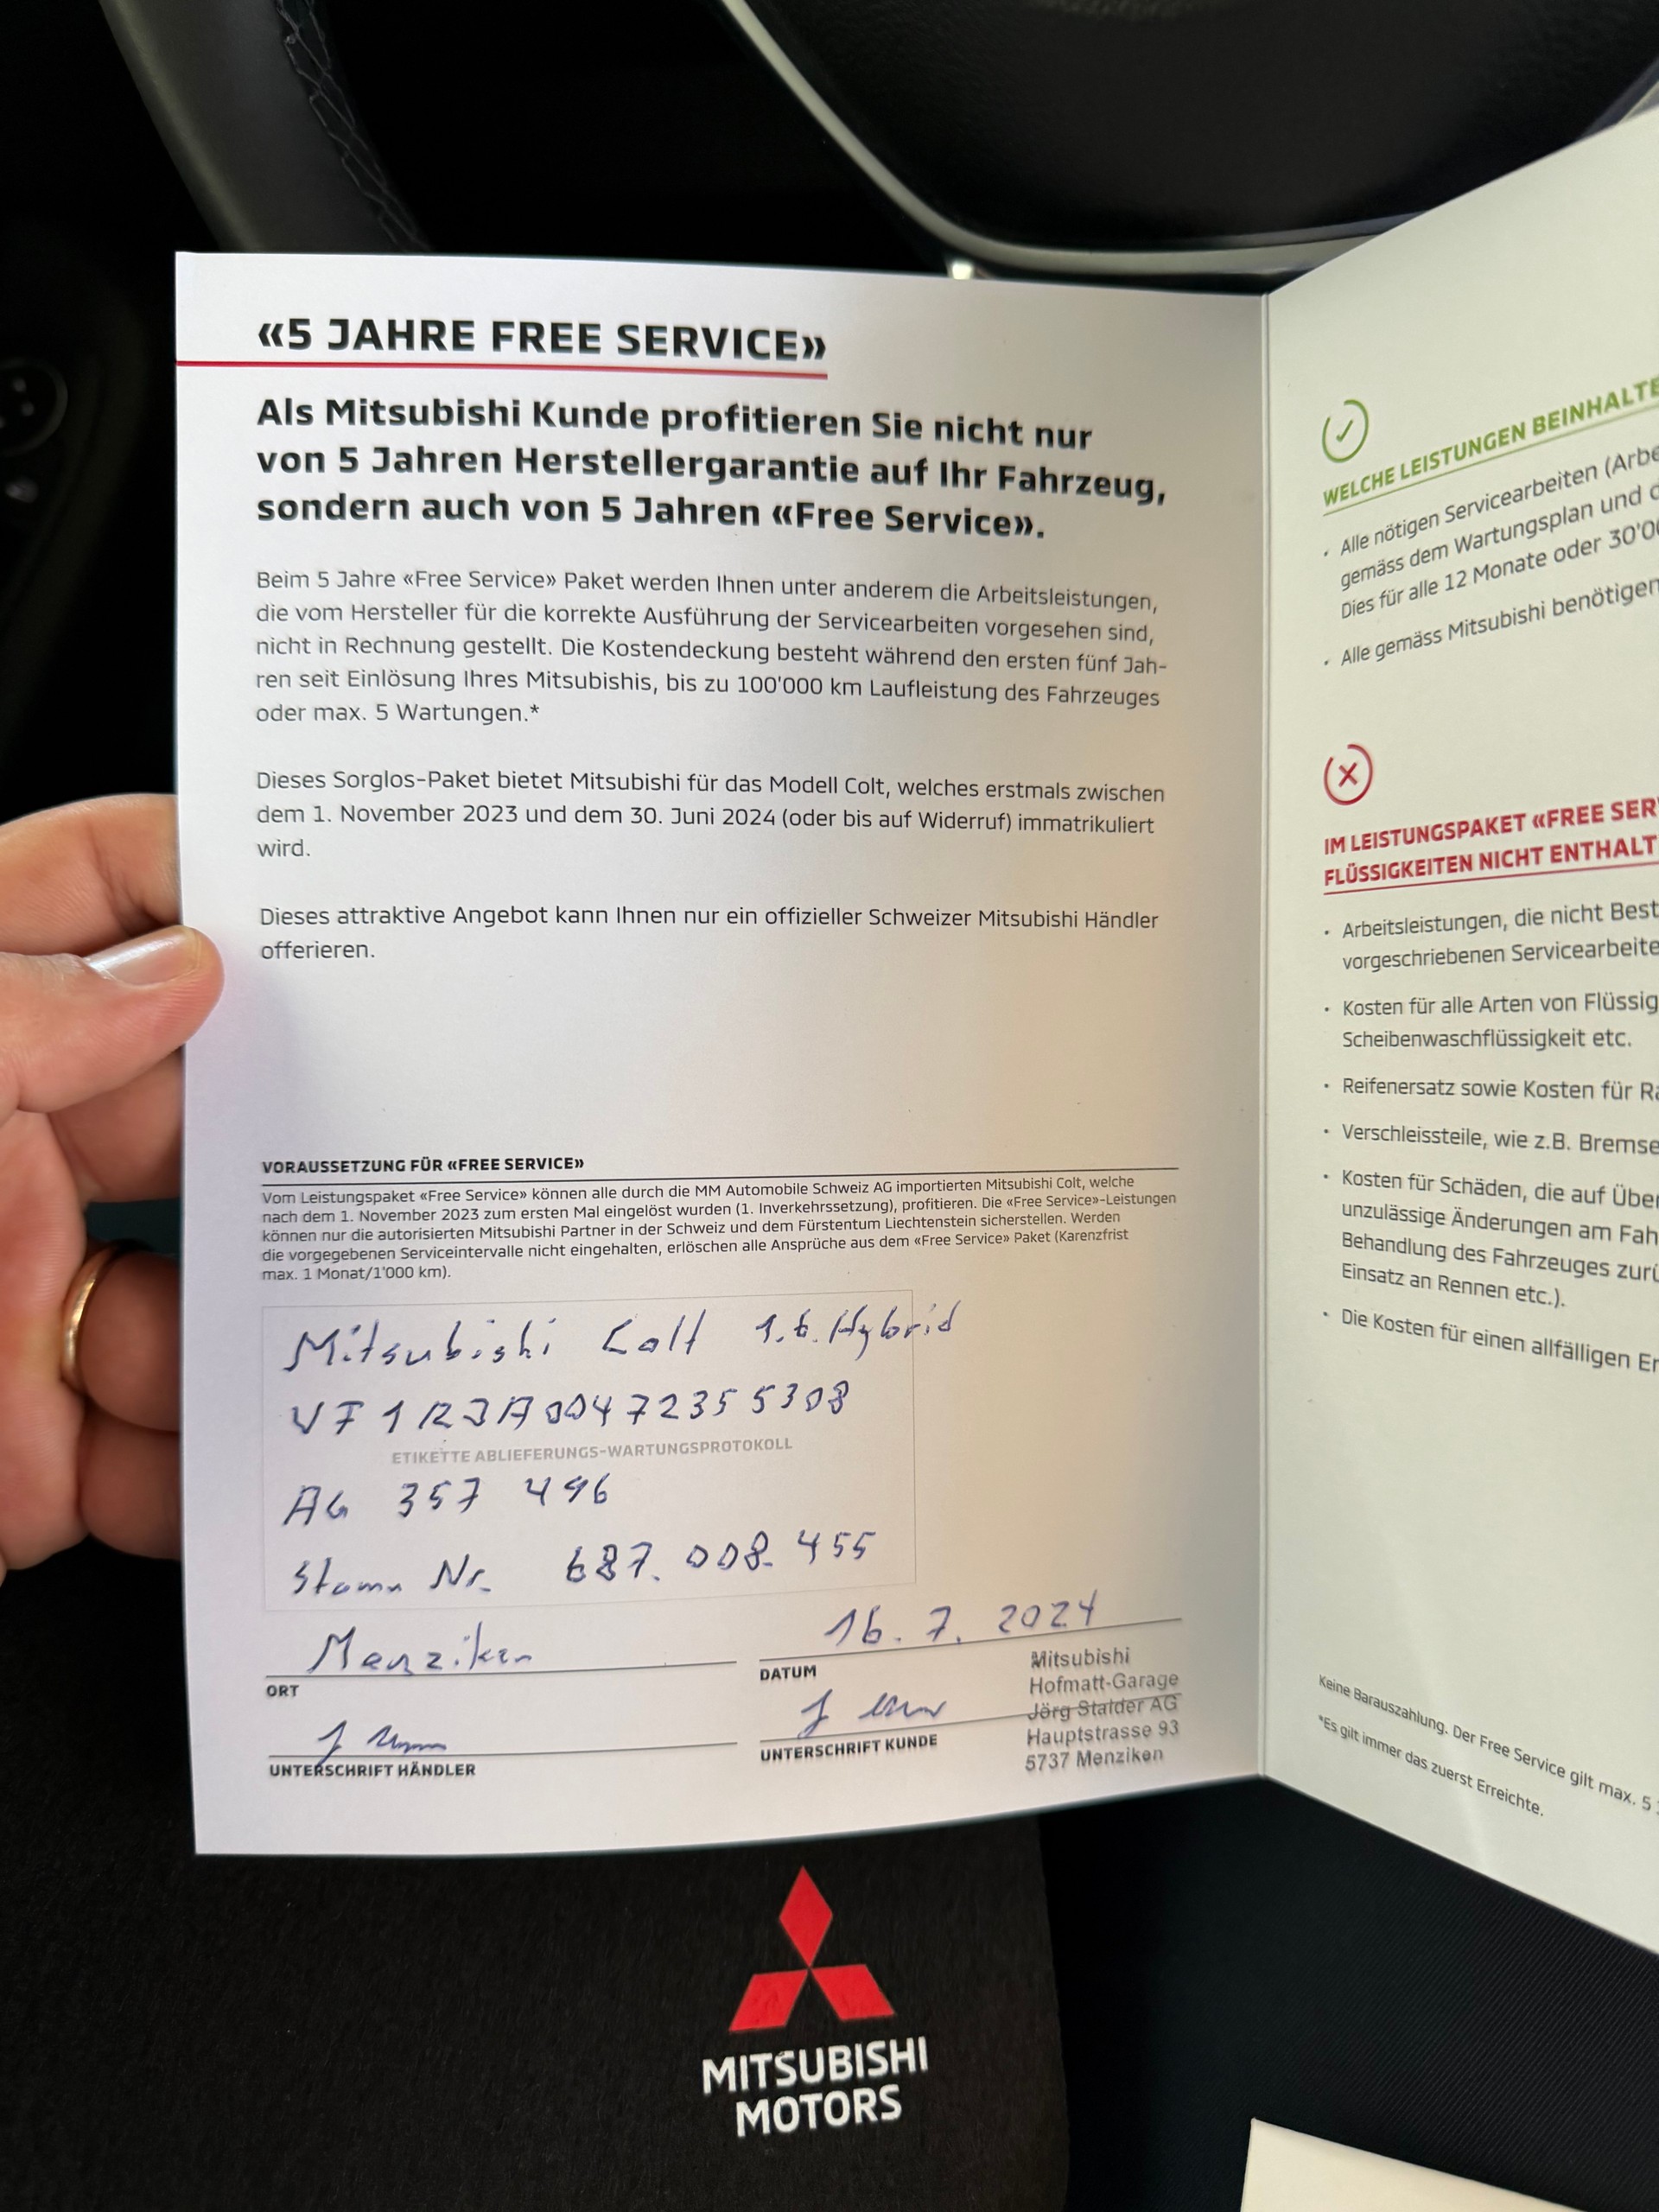 «5 JAHRE FREE SERVICE»
Als Mitsubishi Kunde profitieren Sie nicht nur
von 5 Jahren Herstellergarantie auf Ihr Fahrzeug,
sondern auch von 5 Jahren «Free Service».
Beim 5 Jahre «Free Service» Paket werden Ihnen unter anderem die Arbeitsleistungen,
die vom Hersteller für die korrekte Ausführung der Servicearbeiten vorgesehen sind,
nicht in Rechnung gestellt. Die Kostendeckung besteht während den ersten fünf Jah-
ren seit Einlösung Ihres Mitsubishis, bis zu 100'000 km Laufleistung des Fahrzeuges
oder max. 5 Wartungen.*
Dieses Sorglos-Paket bietet Mitsubishi für das Modell Colt, welches erstmals zwischen
dem 1. November 2023 und dem 30. Juni 2024 (oder bis auf Widerruf) immatrikuliert
wird.
Dieses attraktive Angebot kann Ihnen nur ein offizieller Schweizer Mitsubishi Händler
offerieren.
VORAUSSETZUNG FÜR «FREE SERVICE»
Vom Leistungspaket «Free Service» können alle durch die MM Automobile Schweiz AG importierten Mitsubishi Colt, welche
nach dem 1. November 2023 zum ersten Mal eingelöst wurden (1. Inverkehrssetzung), profitieren. Die «Free Service»-Leistungen
können nur die autorisierten Mitsubishi Partner in der Schweiz und dem Fürstentum Liechtenstein sicherstellen. Werden
die vorgegebenen Serviceintervalle nicht eingehalten, erlöschen alle Ansprüche aus dem «Free Service» Paket (Karenzfrist
max. 1 Monat/1'000 km).
Mitsubishi Colt 1.6. Hybrid
VF1RJA00472355308
ETIKETTE ABLIEFERUNGS-WARTUNGSPROTOKOLL
AG 357 496
Stamm Nr. 687.008.455
Menziken
ORT
16.7.2024
DATUM
UNTERSCHRIFT HÄNDLER
UNTERSCHRIFT KUNDE
Mitsubishi
Hofmatt-Garage
Jörg Stalder AG
Hauptstrasse 93
5737 Menziken
WELCHE LEISTUNGEN BEINHALTE
• Alle nötigen Servicearbeiten (Arbe
gemäss dem Wartungsplan und d
Dies für alle 12 Monate oder 30'00
• Alle gemäss Mitsubishi benötigen
IM LEISTUNGSPAKET «FREE SER
FLÜSSIGKEITEN NICHT ENTHALT
• Arbeitsleistungen, die nicht Best
vorgeschriebenen Servicearbeite
• Kosten für alle Arten von Flüssig
Scheibenwaschflüssigkeit etc.
• Reifenersatz sowie Kosten für Ra
• Verschleissteile, wie z.B. Bremse
• Kosten für Schäden, die auf Über
unzulässige Änderungen am Fah
Behandlung des Fahrzeuges zurü
Einsatz an Rennen etc.).
• Die Kosten für einen allfälligen Er
Keine Barauszahlung. Der Free Service gilt max. 5 J
*Es gilt immer das zuerst Erreichte.
MITSUBISHI
MOTORS